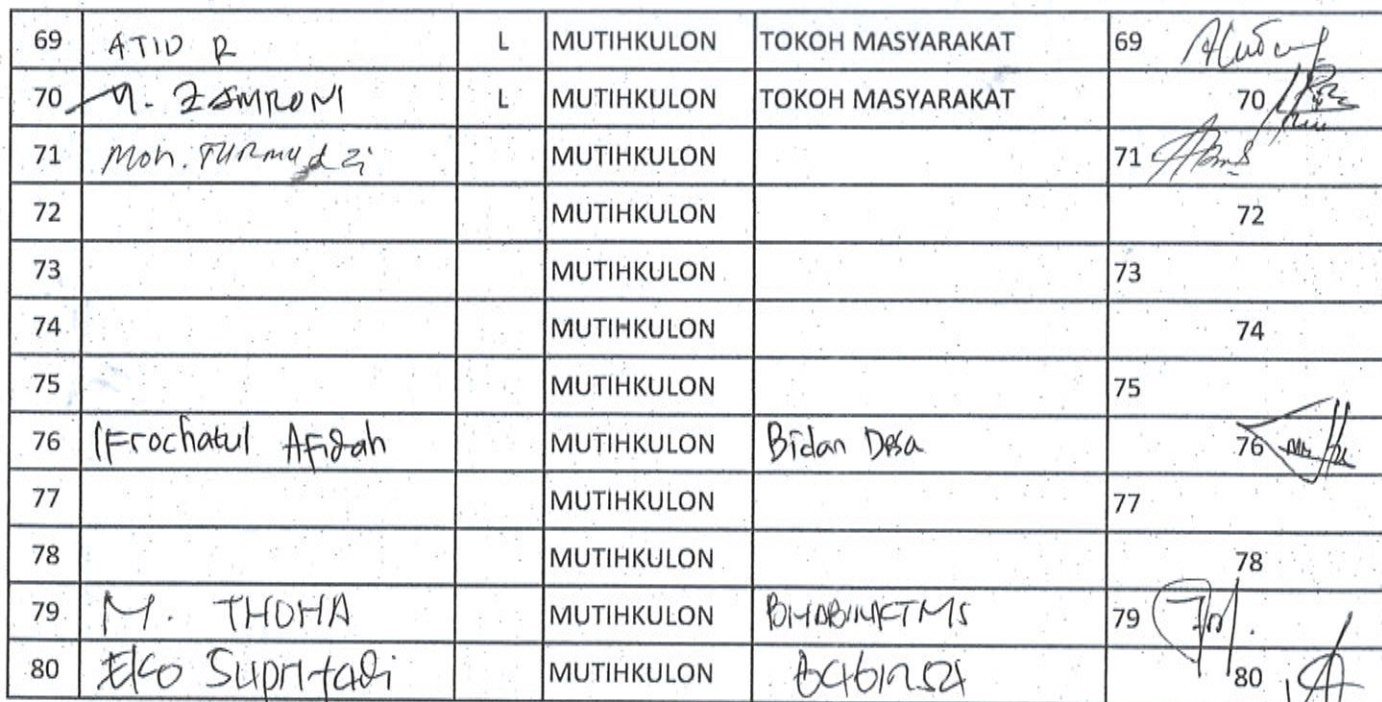 69 ATID R L MUTIHKULON TOKOH MASYARAKAT 69
70 M. ZAMRONI L MUTIHKULON TOKOH MASYARAKAT 70
71 Moh. TURmudzi MUTIHKULON 71
72 MUTIHKULON 72
73 MUTIHKULON 73
74 MUTIHKULON 74
75 MUTIHKULON 75
76 IFrochatul AFidah MUTIHKULON Bidan Desa 76
77 MUTIHKULON 77
78 MUTIHKULON 78
79 M. THOHA MUTIHKULON 79
80 Eko Supritadi MUTIHKULON Babinsa 80